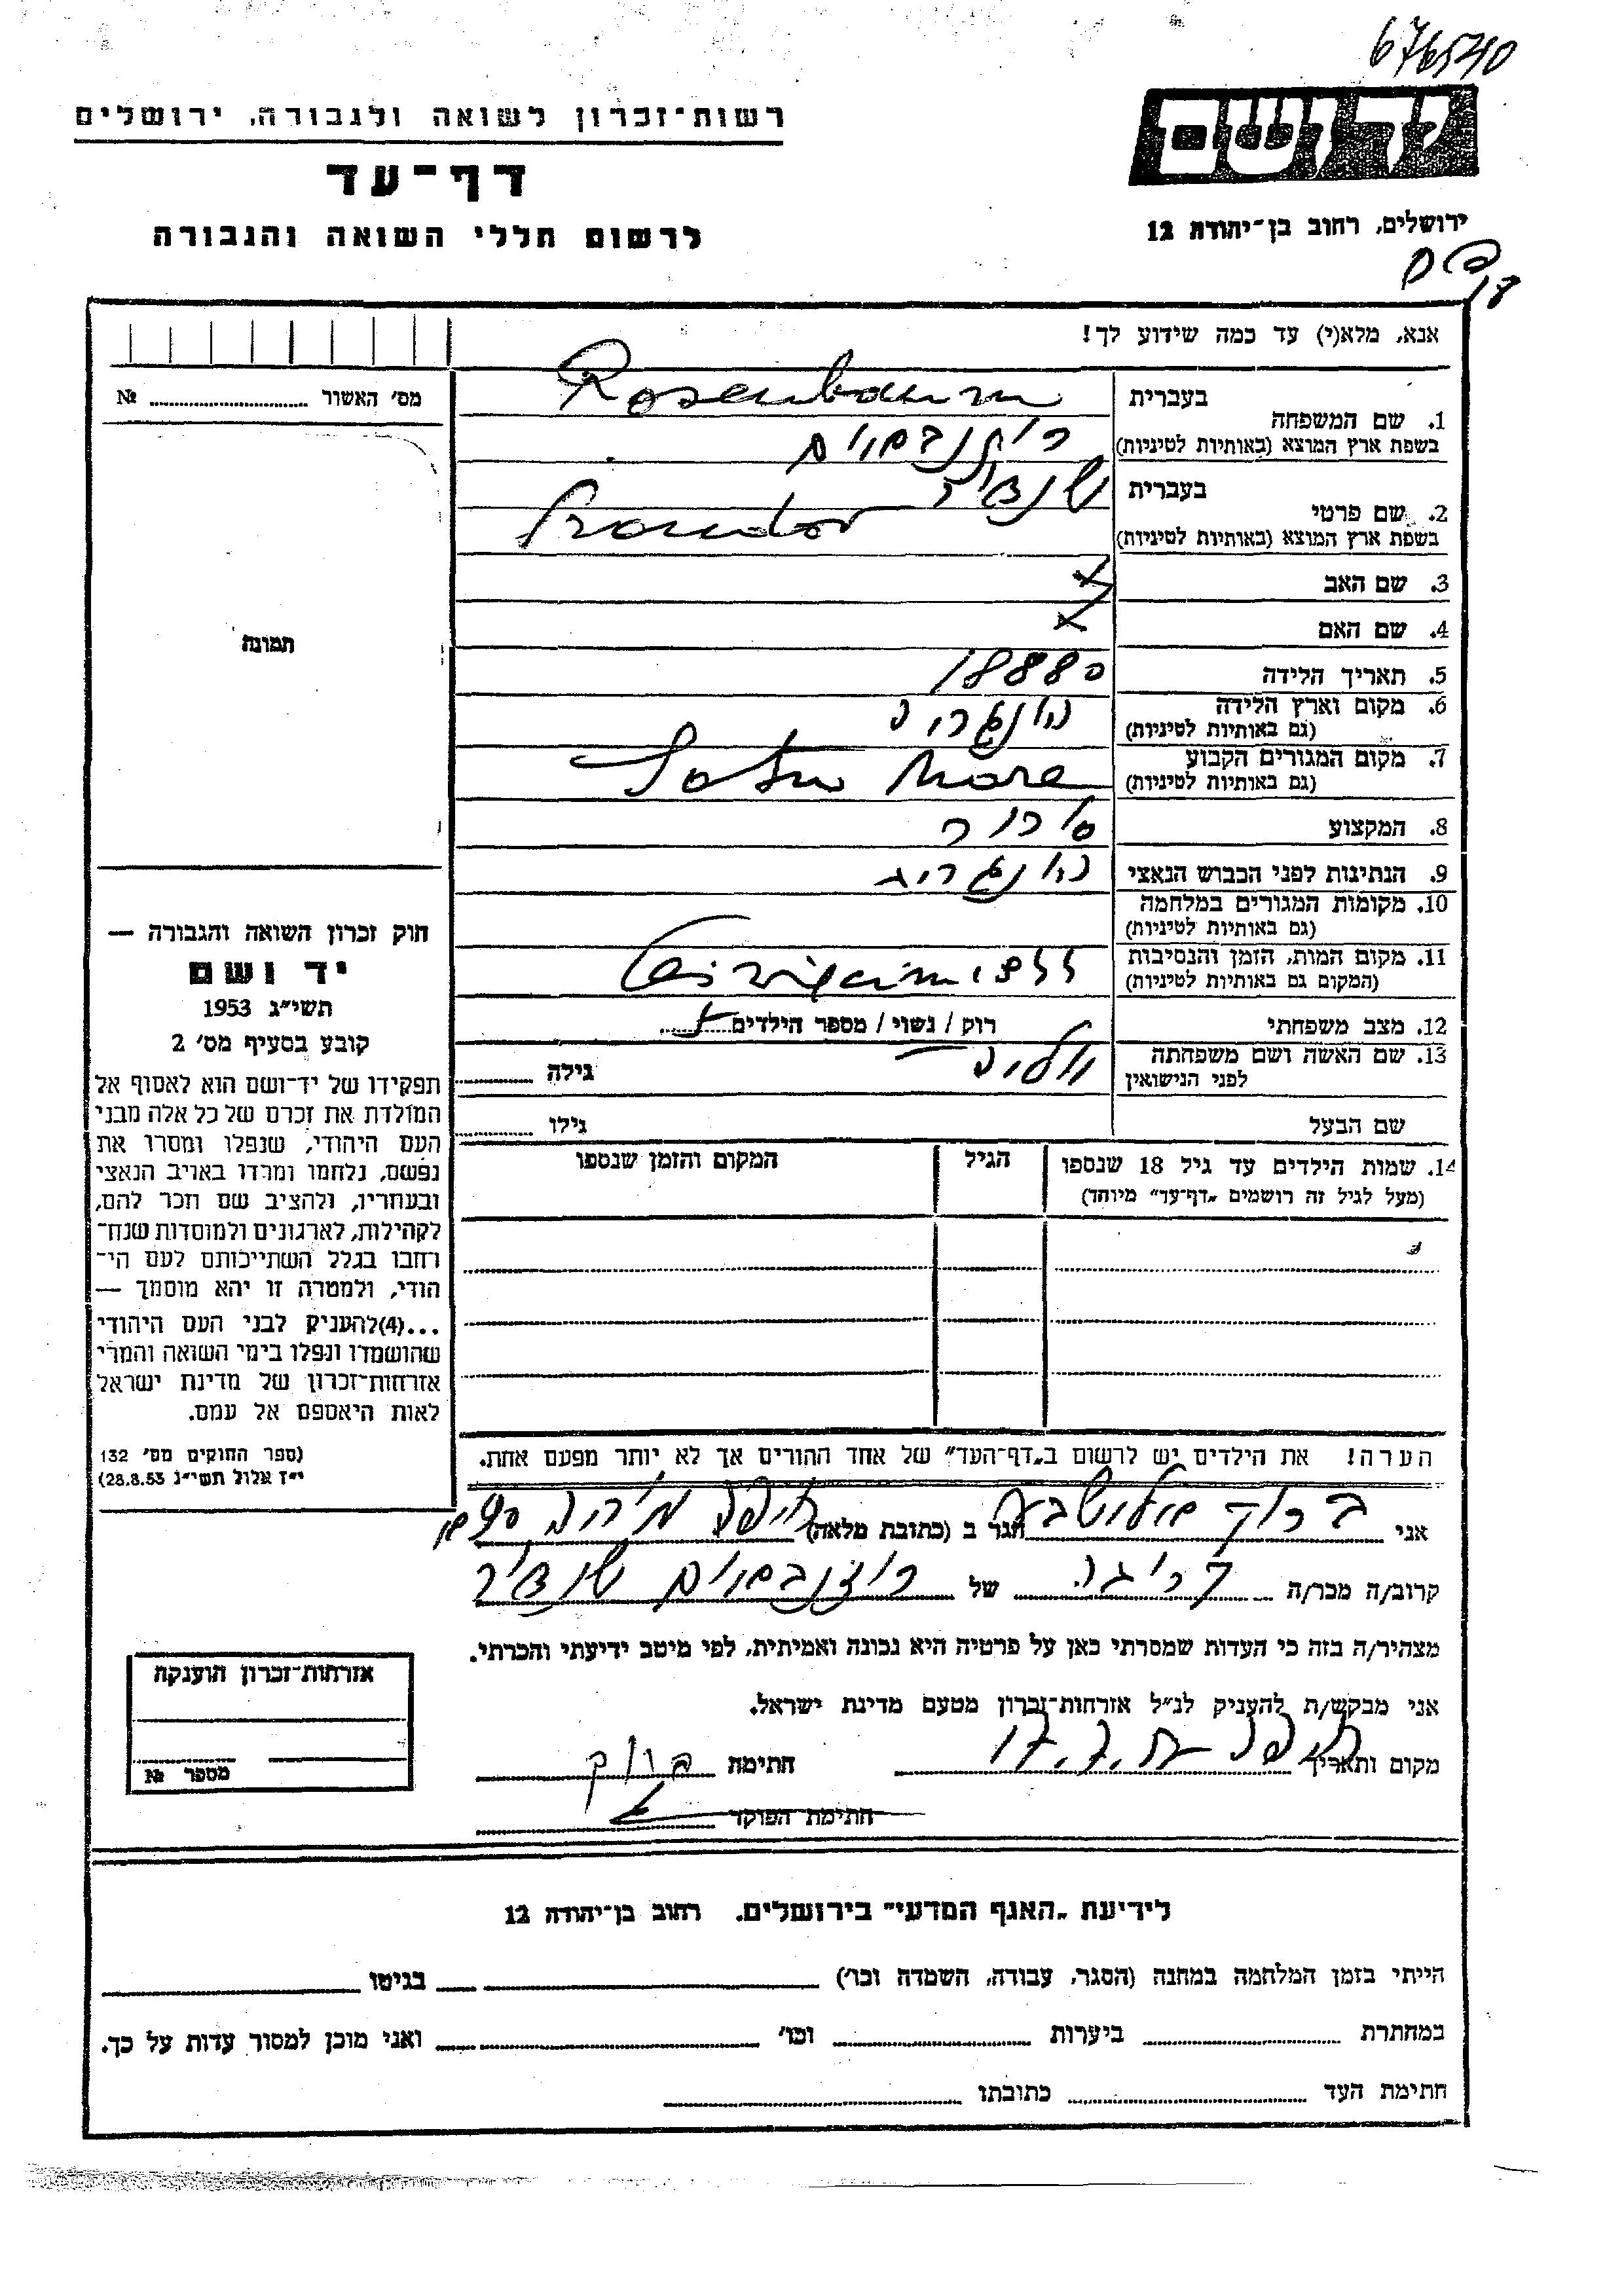 676540
ידושם
ירושלים, רחוב בן־יהודה 12
רשות־זכרון לשואה ולגבורה, ירושלים
דף־עד
לרשום חללי השואה והגבורה
אנא, מלא(י) עד כמה שידוע לך!
מס' האשור № 
תמונה
בעברית Rosenbaum
1. שם המשפחה
בשפת ארץ המוצא (באותיות לטיניות) רוזנבאוים
בעברית שנדור
2. שם פרטי
בשפת ארץ המוצא (באותיות לטיניות)
3. שם האב
4. שם האם
5. תאריך הלידה
6. מקום וארץ הלידה
(גם באותיות לטיניות)
7. מקום המגורים הקבוע Satu Mare
(גם באותיות לטיניות)
8. המקצוע סוחר
9. הנתינות לפני הכבוש הנאצי
10. מקומות המגורים במלחמה
(גם באותיות לטיניות)
11. מקום המות, הזמן והנסיבות
(המקום גם באותיות לטיניות)
12. מצב משפחתי רוק / נשוי / מספר הילדים
13. שם האשה ושם משפחתה גילה
לפני הנישואין
שם הבעל גילו
14. שמות הילדים עד גיל 18 שנספו הגיל המקום והזמן שנספו
(מעל לגיל זה רושמים "דף־עד" מיוחד)
חוק זכרון השואה והגבורה —
יד ושם
תשי"ג 1953
קובע בסעיף מס' 2
תפקידו של יד־ושם הוא לאסוף אל
המולדת את זכרם של כל אלה מבני
העם היהודי, שנפלו ומסרו את
נפשם, נלחמו ומרדו באויב הנאצי
ובעוזריו, ולהציב שם וזכר להם,
לקהילות, לארגונים ולמוסדות שנח־
רבו בגלל השתייכותם לעם הי־
הודי, ולמטרה זו יהא מוסמך —
...(4)להעניק לבני העם היהודי
שהושמדו ונפלו בימי השואה והמרי
אזרחות־זכרון של מדינת ישראל
לאות היאספם אל עמם.
(ספר החוקים מס' 132
י"ז אלול תשי"ג 28.8.53)
הערה! את הילדים יש לרשום ב"דף־העד" של אחד ההורים אך לא יותר מפעם אחת.
אני ברוך הגר ב (כתובת מלאה) חיפה
קרוב/ה מכר/ה של רוזנבאוים שנדור
מצהיר/ה בזה כי העדות שמסרתי כאן על פרטיה היא נכונה ואמיתית, לפי מיטב ידיעתי והכרתי.
אני מבקש/ת להעניק לנ"ל אזרחות־זכרון מטעם מדינת ישראל.
מקום ותאריך חיפה חתימה ברוך
חתימת הפוקד
אזרחות־זכרון הוענקה
מספר №
לידיעת "האגף המדעי" בירושלים, רחוב בן־יהודה 12
הייתי בזמן המלחמה במחנה (הסגר, עבודה, השמדה וכו') בגיטו
במחתרת ביערות וכו' ואני מוכן למסור עדות על כך.
חתימת העד כתובתו